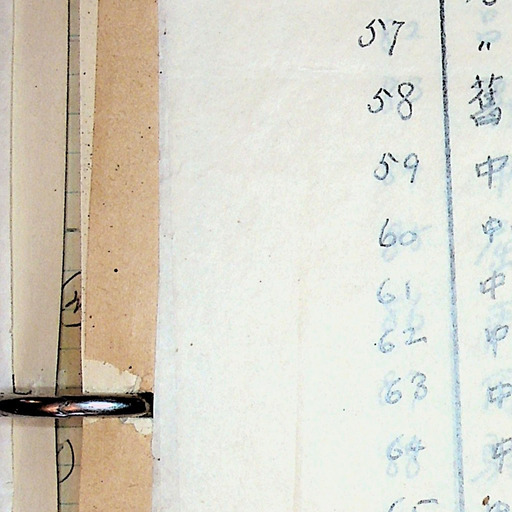 57 〃
58 舊
59 中
60 中
61 中
62 中
63 中
64 中
65